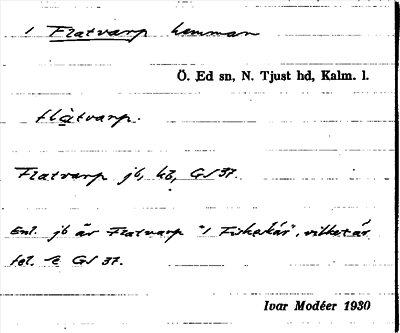 1 Flatvarp hemman
Ö. Ed sn, N. Tjust hd, Kalm. l.
flàtvarp.
Flatvarp jb, kb, GS 37.
Enl. jb är Flatvarp "1 Fiskeskär", vilket är
fel. Se GS 37.
Ivar Modéer 1930